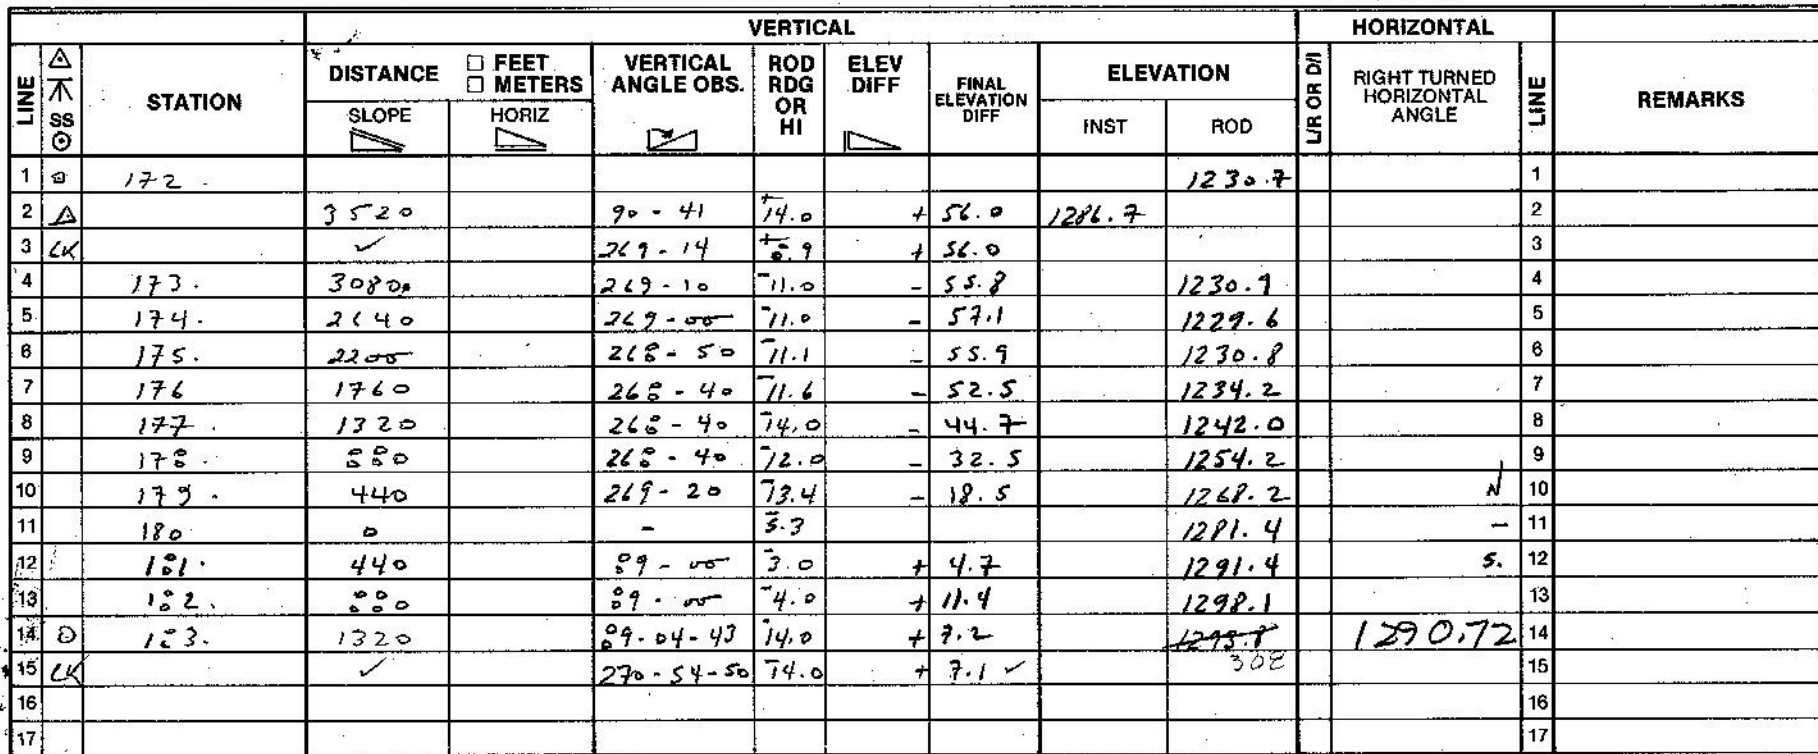 VERTICAL HORIZONTAL
LINE SS STATION DISTANCE □ FEET □ METERS VERTICAL ANGLE OBS. ROD RDG OR HI ELEV DIFF FINAL ELEVATION DIFF ELEVATION L/R OR D/I RIGHT TURNED HORIZONTAL ANGLE LINE REMARKS
SLOPE HORIZ INST ROD
1 172 . 1230.7 1
2 3520 90 - 41 +14.0 + 56.0 1286.7 2
3 LK ✓ 269 - 14 +8.9 + 56.0 3
4 173. 3080. 269 - 10 -11.0 - 55.8 1230.9 4
5 174. 2640 269 - 00 -11.0 - 57.1 1229.6 5
6 175. 2200 268 - 50 -11.1 - 55.9 1230.8 6
7 176 1760 268 - 40 -11.6 - 52.5 1234.2 7
8 177 . 1320 268 - 40 -14.0 - 44.7 1242.0 8
9 178 . 880 268 - 40 -12.0 - 32.5 1254.2 9
10 179 . 440 269 - 20 -13.4 - 18.5 1268.2 N 10
11 180 0 - -5.3 1281.4 - 11
12 181. 440 89 - 00 -3.0 + 4.7 1291.4 S. 12
13 182. 880 89 - 00 -4.0 + 11.4 1298.1 13
14 183. 1320 89 - 04 - 43 -14.0 + 7.2 1290.72 14
15 LK ✓ 270 - 54 - 50 -14.0 + 7.1 ✓ 15
16 16
17 17